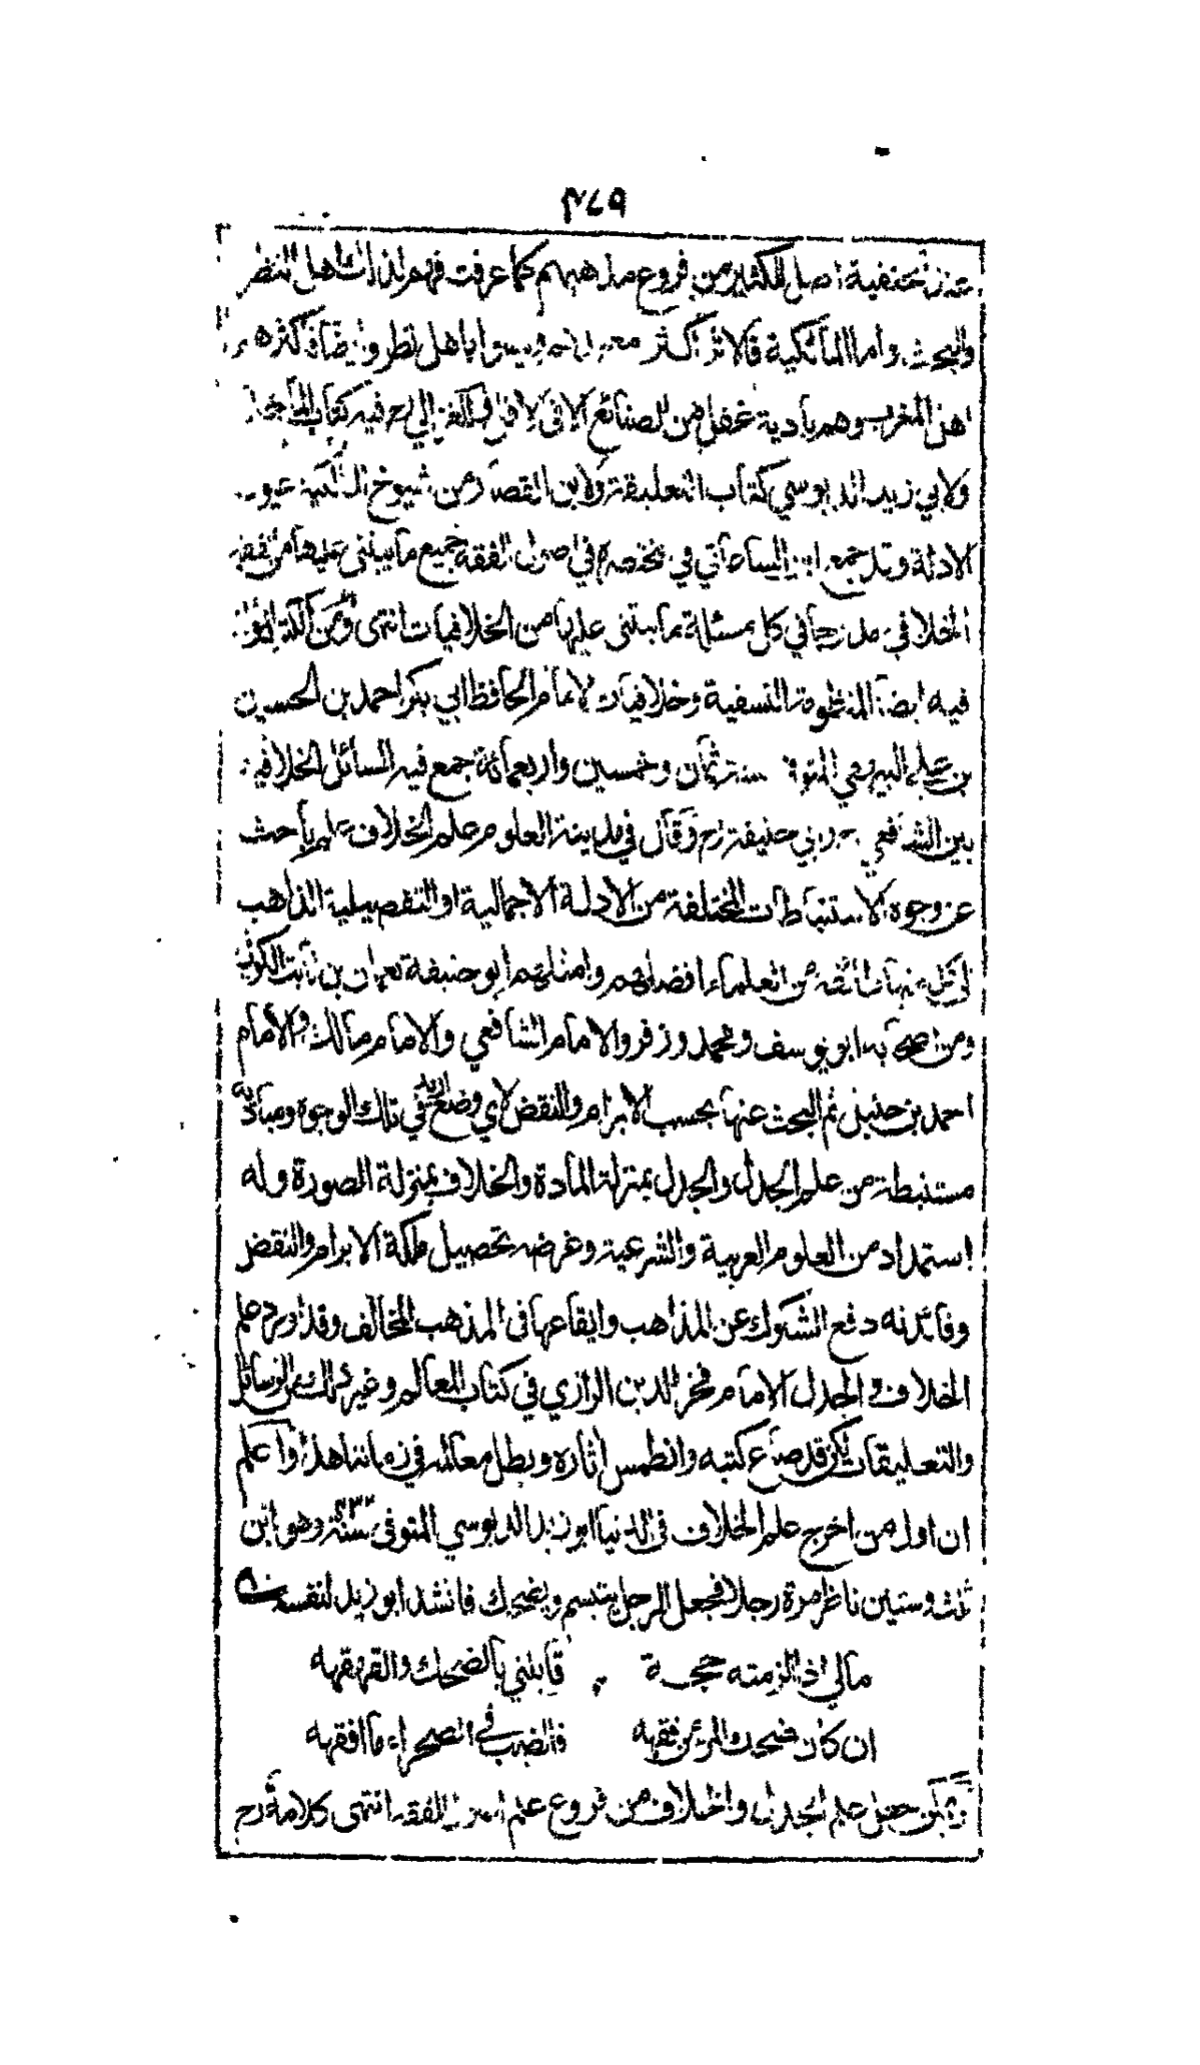 ٤٧٩
عند الحنفية اصل للكثير من فروع مذاهبهم كما عرفت فهم لذلك اهل النظر
والبحث واما المالكية فالاثر اكثر معتمدهم وليسوا باهل نظر وايضا فاكثرهم
اهل المغرب وهم بادية غفل من الصنائع الا في الاقل وللغزالي رح فيه كتاب المآخذ
ولابي زيد الدبوسي كتاب التعليقة ولابن القصار من شيوخ المالكية عيون
الادلة وقد جمع ابن الساعاتي في مختصره في اصول الفقه جميع ما يبتنى عليها من الفقه
الخلافي مدرجا في كل مسئلة ما يبتنى عليها من الخلافيات انتهى ومن الكتب المؤلفة
فيه ايضا المنظومة النسفية وخلافيات الامام الحافظ ابي بكر احمد بن الحسين
بن علي البيهقي المتوفى سنة ثمان وخمسين واربعمائة جمع فيه المسائل الخلافية
بين الشافعي وابي حنيفة رح وقال في مدينة العلوم علم الخلاف علم باحث
عن وجوه الاستنباطات المختلفة من الادلة الاجمالية او التفصيلية الذاهب
الى كل منها طائفة من العلماء افضلهم وامثلهم ابو حنيفة نعمان بن ثابت الكوفي
ومن اصحابه ابو يوسف ومحمد وزفر والامام الشافعي والامام مالك والامام
احمد بن حنبل ثم البحث عنها بحسب الابرام والنقض لاي وضع اريد في تلك الوجوه ومباديه
مستنبطة من علم الجدل والجدل بمنزلة المادة والخلاف بمنزلة الصورة وله
استمداد من العلوم العربية والشرعية وغرضه تحصيل ملكة الابرام والنقض
وفائدته دفع الشكوك عن المذاهب وايقاعها في المذهب المخالف وقد اورد علم
الخلاف والجدل الامام فخر الدين الرازي في كتاب المعالم وغير ذلك من الرسائل
والتعليقات لكن قد ضاع كتبه وانطمس اثاره وبطل معالمه في زماننا هذا واعلم
ان اول من اخرج علم الخلاف في الدنيا ابو زيد الدبوسي المتوفى سنة ٤٣٢ وهو ابن
ثلث وستين ناظر مرة رجلا فجعل الرجل يتبسم ويضحك فانشد ابو زيد لنفسه
مالي اذا الزمته حجة قابلني بالضحك والقهقهه
ان كان ضحك المرء من فقهه فالضب في الصحراء ما افقهه
ويمكن جعل علم الجدل والخلاف من فروع علم اصول الفقه انتهى كلامه رح